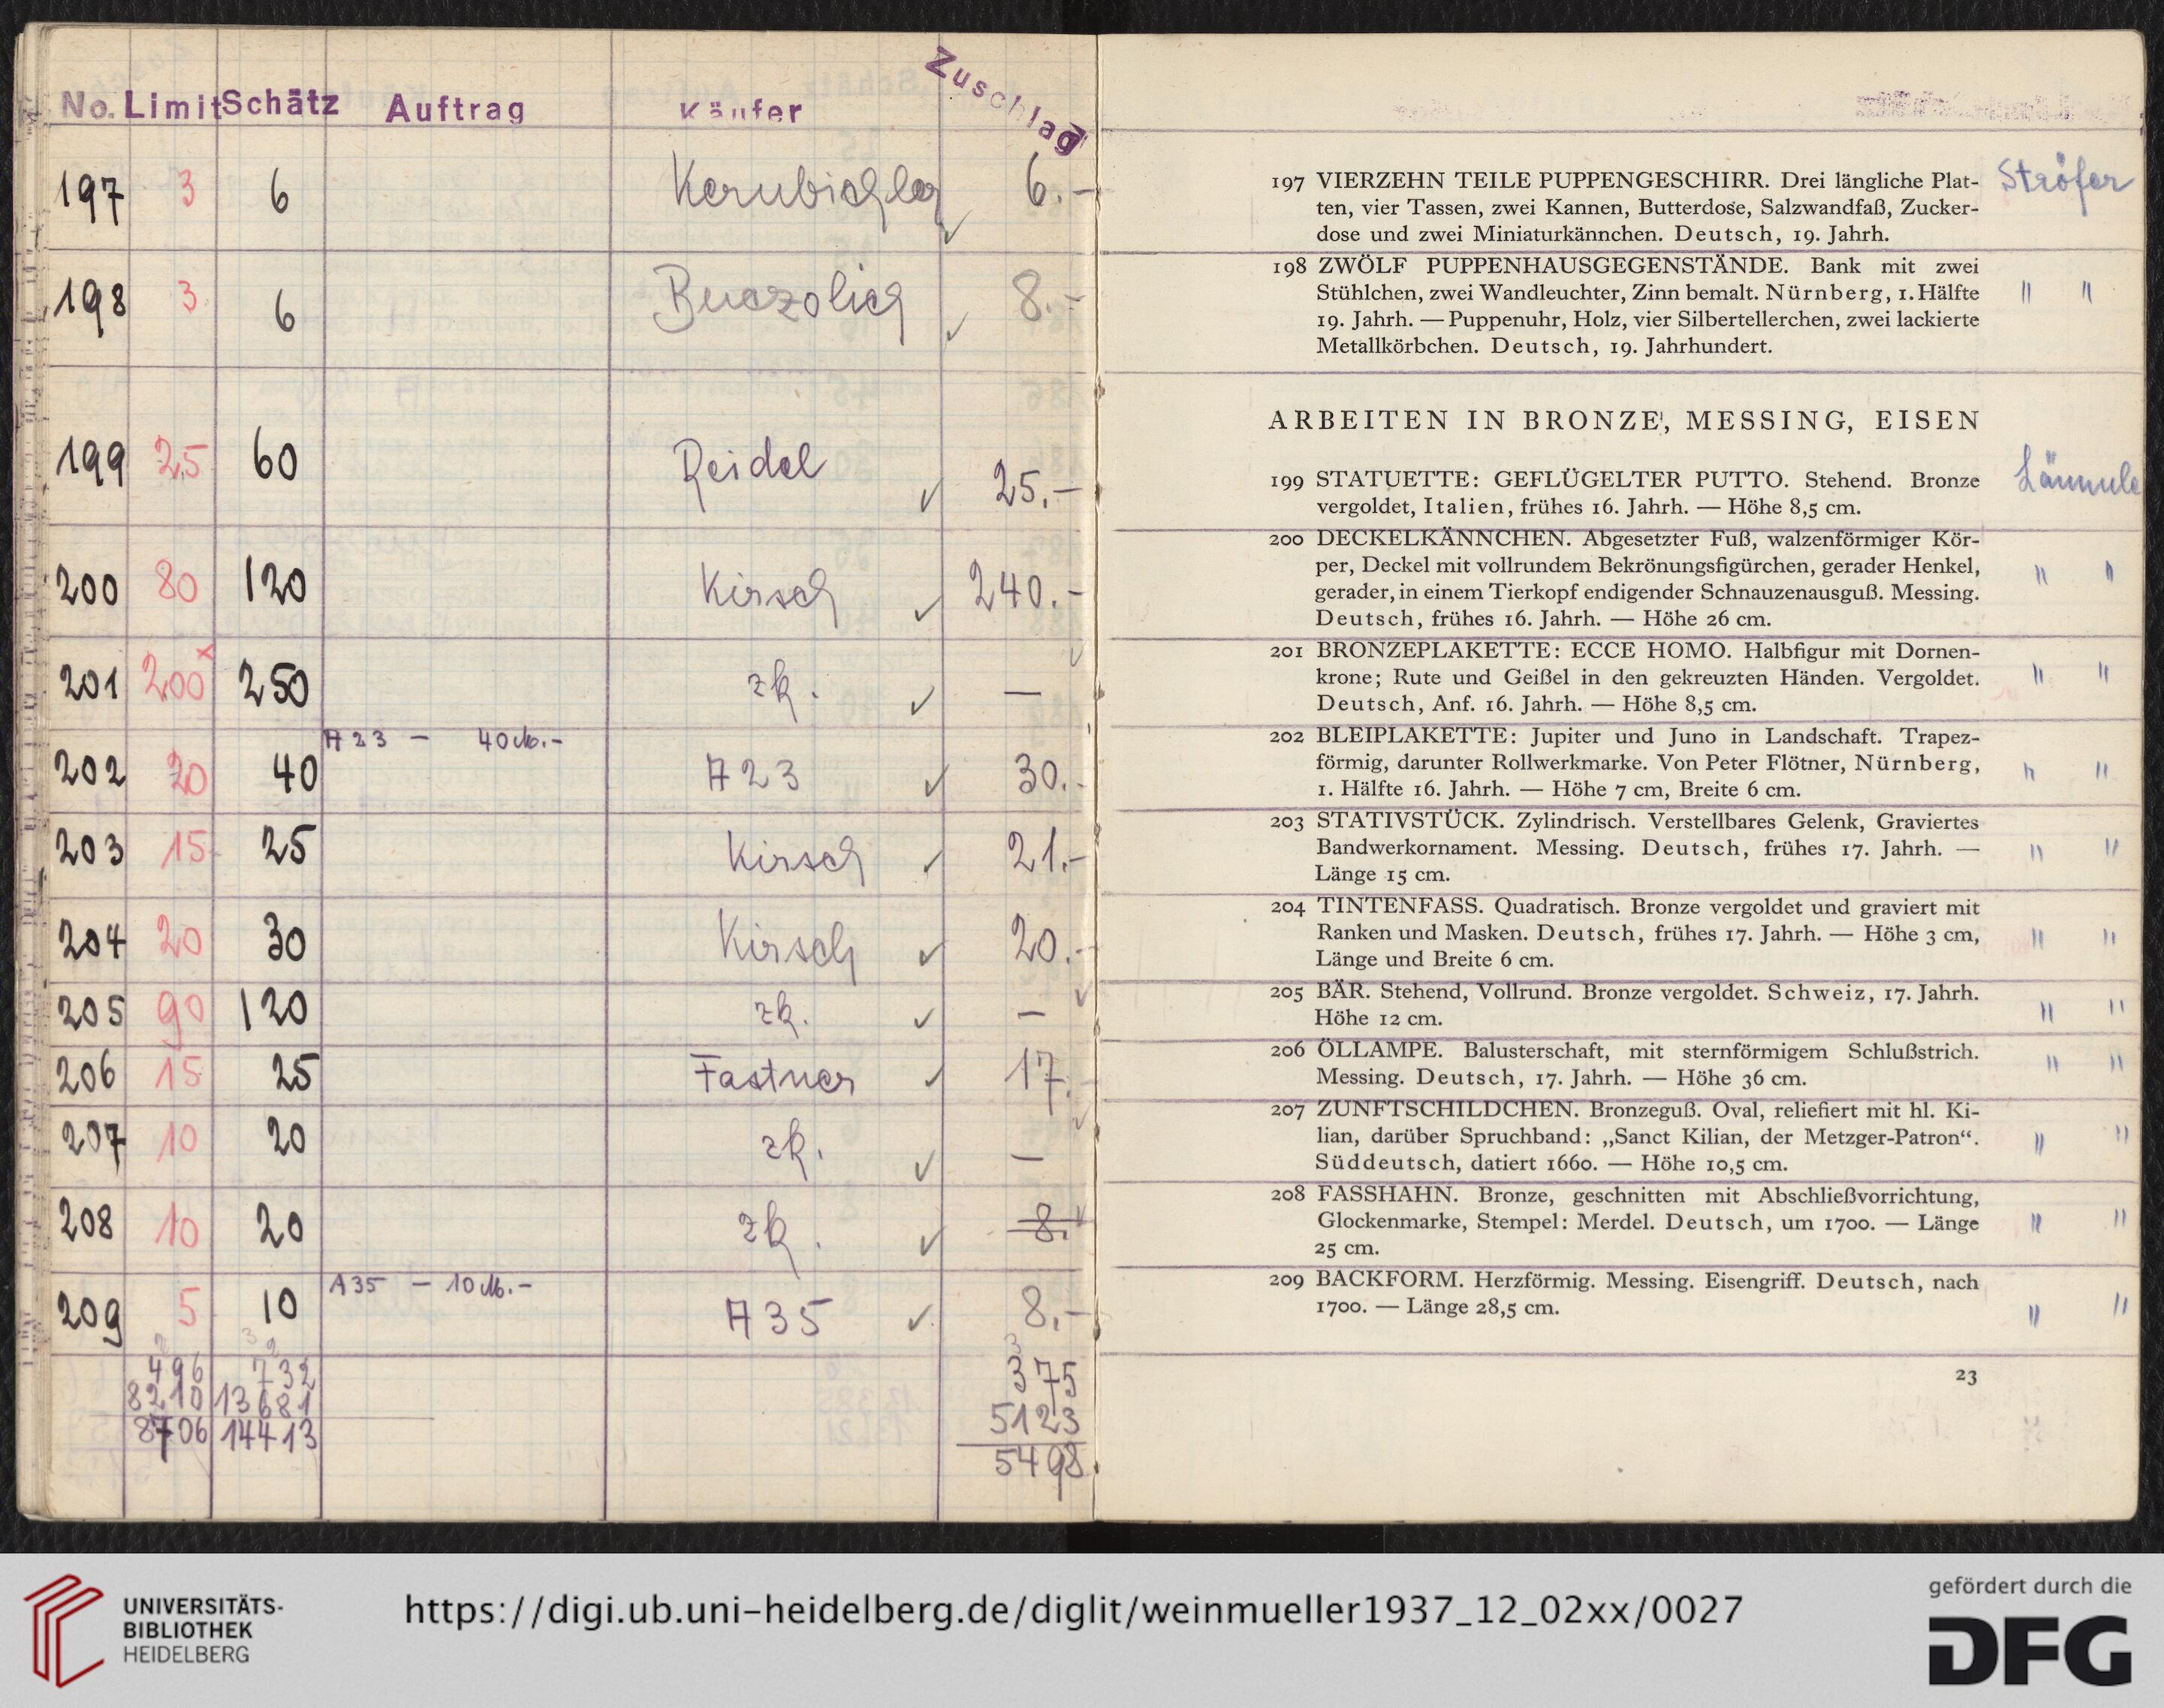 No. Limit Schätz Auftrag Käufer Zuschlag
197 3 6 Kerubichler 6.-
198 3 6 8.-
199 25 60 Reidel 25.-
200 80 120 Kirsch 240.-
201 200x 250 zk. —
A 23 — 40 M.-
202 20 40 A 23 30.-
203 15 25 Kirsch 21.-
204 20 30 Kirsch 20.-
205 90 120 zk. —
206 15 25 Fastner 17.-
207 10 20 zk. —
208 10 20 zk. 8.
A 35 — 10 M.-
209 5 10 A 35 8.-
496 732 375
8210 13681 5123
8706 14413 5498
197 VIERZEHN TEILE PUPPENGESCHIRR. Drei längliche Plat- Ströfer
ten, vier Tassen, zwei Kannen, Butterdose, Salzwandfaß, Zucker-
dose und zwei Miniaturkännchen. Deutsch, 19. Jahrh.
198 ZWÖLF PUPPENHAUSGEGENSTÄNDE. Bank mit zwei
Stühlchen, zwei Wandleuchter, Zinn bemalt. Nürnberg, 1. Hälfte " "
19. Jahrh. — Puppenuhr, Holz, vier Silbertellerchen, zwei lackierte
Metallkörbchen. Deutsch, 19. Jahrhundert.
ARBEITEN IN BRONZE, MESSING, EISEN
199 STATUETTE: GEFLÜGELTER PUTTO. Stehend. Bronze Lämmle
vergoldet, Italien, frühes 16. Jahrh. — Höhe 8,5 cm.
200 DECKELKÄNNCHEN. Abgesetzter Fuß, walzenförmiger Kör-
per, Deckel mit vollrundem Bekrönungsfigürchen, gerader Henkel, " "
gerader, in einem Tierkopf endigender Schnauzenausguß. Messing.
Deutsch, frühes 16. Jahrh. — Höhe 26 cm.
201 BRONZEPLAKETTE: ECCE HOMO. Halbfigur mit Dornen-
krone; Rute und Geißel in den gekreuzten Händen. Vergoldet. " "
Deutsch, Anf. 16. Jahrh. — Höhe 8,5 cm.
202 BLEIPLAKETTE: Jupiter und Juno in Landschaft. Trapez-
förmig, darunter Rollwerkmarke. Von Peter Flötner, Nürnberg, " "
1. Hälfte 16. Jahrh. — Höhe 7 cm, Breite 6 cm.
203 STATIVSTÜCK. Zylindrisch. Verstellbares Gelenk, Graviertes
Bandwerkornament. Messing. Deutsch, frühes 17. Jahrh. — " "
Länge 15 cm.
204 TINTENFASS. Quadratisch. Bronze vergoldet und graviert mit
Ranken und Masken. Deutsch, frühes 17. Jahrh. — Höhe 3 cm, " "
Länge und Breite 6 cm.
205 BÄR. Stehend, Vollrund. Bronze vergoldet. Schweiz, 17. Jahrh.
Höhe 12 cm. " "
206 ÖLLAMPE. Balusterschaft, mit sternförmigem Schlußstrich. " "
Messing. Deutsch, 17. Jahrh. — Höhe 36 cm.
207 ZUNFTSCHILDCHEN. Bronzeguß. Oval, reliefiert mit hl. Ki-
lian, darüber Spruchband: „Sanct Kilian, der Metzger-Patron“. " "
Süddeutsch, datiert 1660. — Höhe 10,5 cm.
208 FASSHAHN. Bronze, geschnitten mit Abschließvorrichtung,
Glockenmarke, Stempel: Merdel. Deutsch, um 1700. — Länge " "
25 cm.
209 BACKFORM. Herzförmig. Messing. Eisengriff. Deutsch, nach
1700. — Länge 28,5 cm. " "
23
UNIVERSITÄTS-
BIBLIOTHEK
HEIDELBERG
https://digi.ub.uni-heidelberg.de/diglit/weinmueller1937_12_02xx/0027
gefördert durch die
DFG